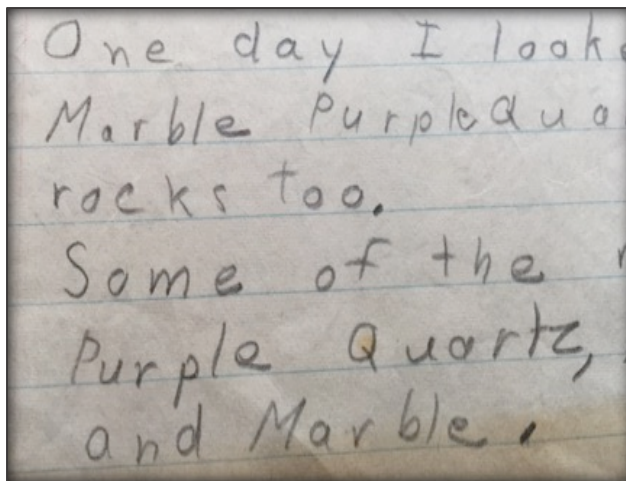 One day I look
Marble Purple Qua
rocks too.
Some of the
Purple Quartz,
and Marble.